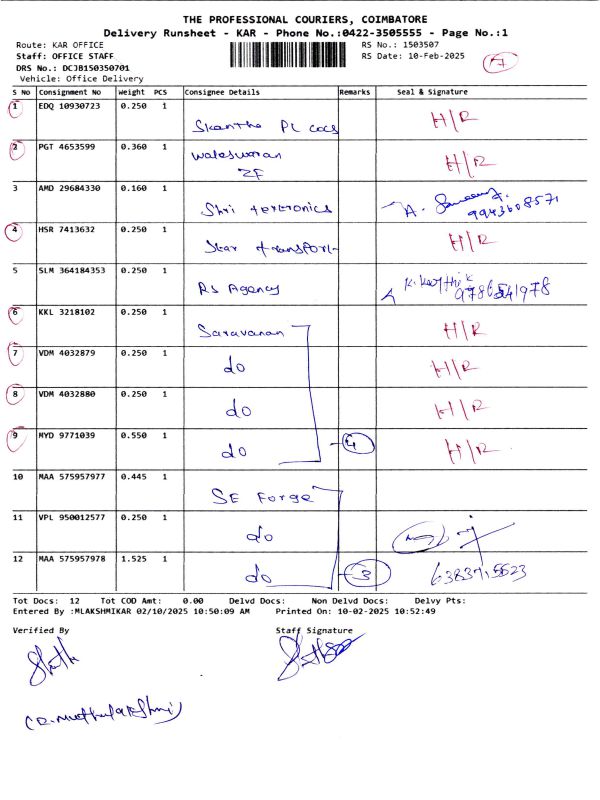 THE PROFESSIONAL COURIERS, COIMBATORE
Delivery Runsheet - KAR - Phone No.:0422-3505555 - Page No.:1
Route: KAR OFFICE RS No.: 1503507
Staff: OFFICE STAFF RS Date: 10-Feb-2025
DRS No.: DCJB150350701 7
Vehicle: Office Delivery
S No Consignment No Weight PCS Consignee Details Remarks Seal & Signature
1 EDQ 10930723 0.250 1 H/R
2 PGT 4653599 0.360 1 H/R
ZF
3 AMD 29684330 0.160 1
Shri 9943608571
4 HSR 7413632 0.250 1 Star transport H/R
5 SLM 364184353 0.250 1 RS Agency K. Karthik
6 KKL 3218102 0.250 1 Saravanan H/R
7 VDM 4032879 0.250 1 do H/R
8 VDM 4032880 0.250 1 do H/R
9 MYD 9771039 0.550 1 do 4 H/R
10 MAA 575957977 0.445 1 SE Forge
11 VPL 950012577 0.250 1 do
12 MAA 575957978 1.525 1 do 3
Tot Docs: 12 Tot COD Amt: 0.00 Delvd Docs: Non Delvd Docs: Delvy Pts:
Entered By :MLAKSHMIKAR 02/10/2025 10:50:09 AM Printed On: 10-02-2025 10:52:49
Verified By Staff Signature